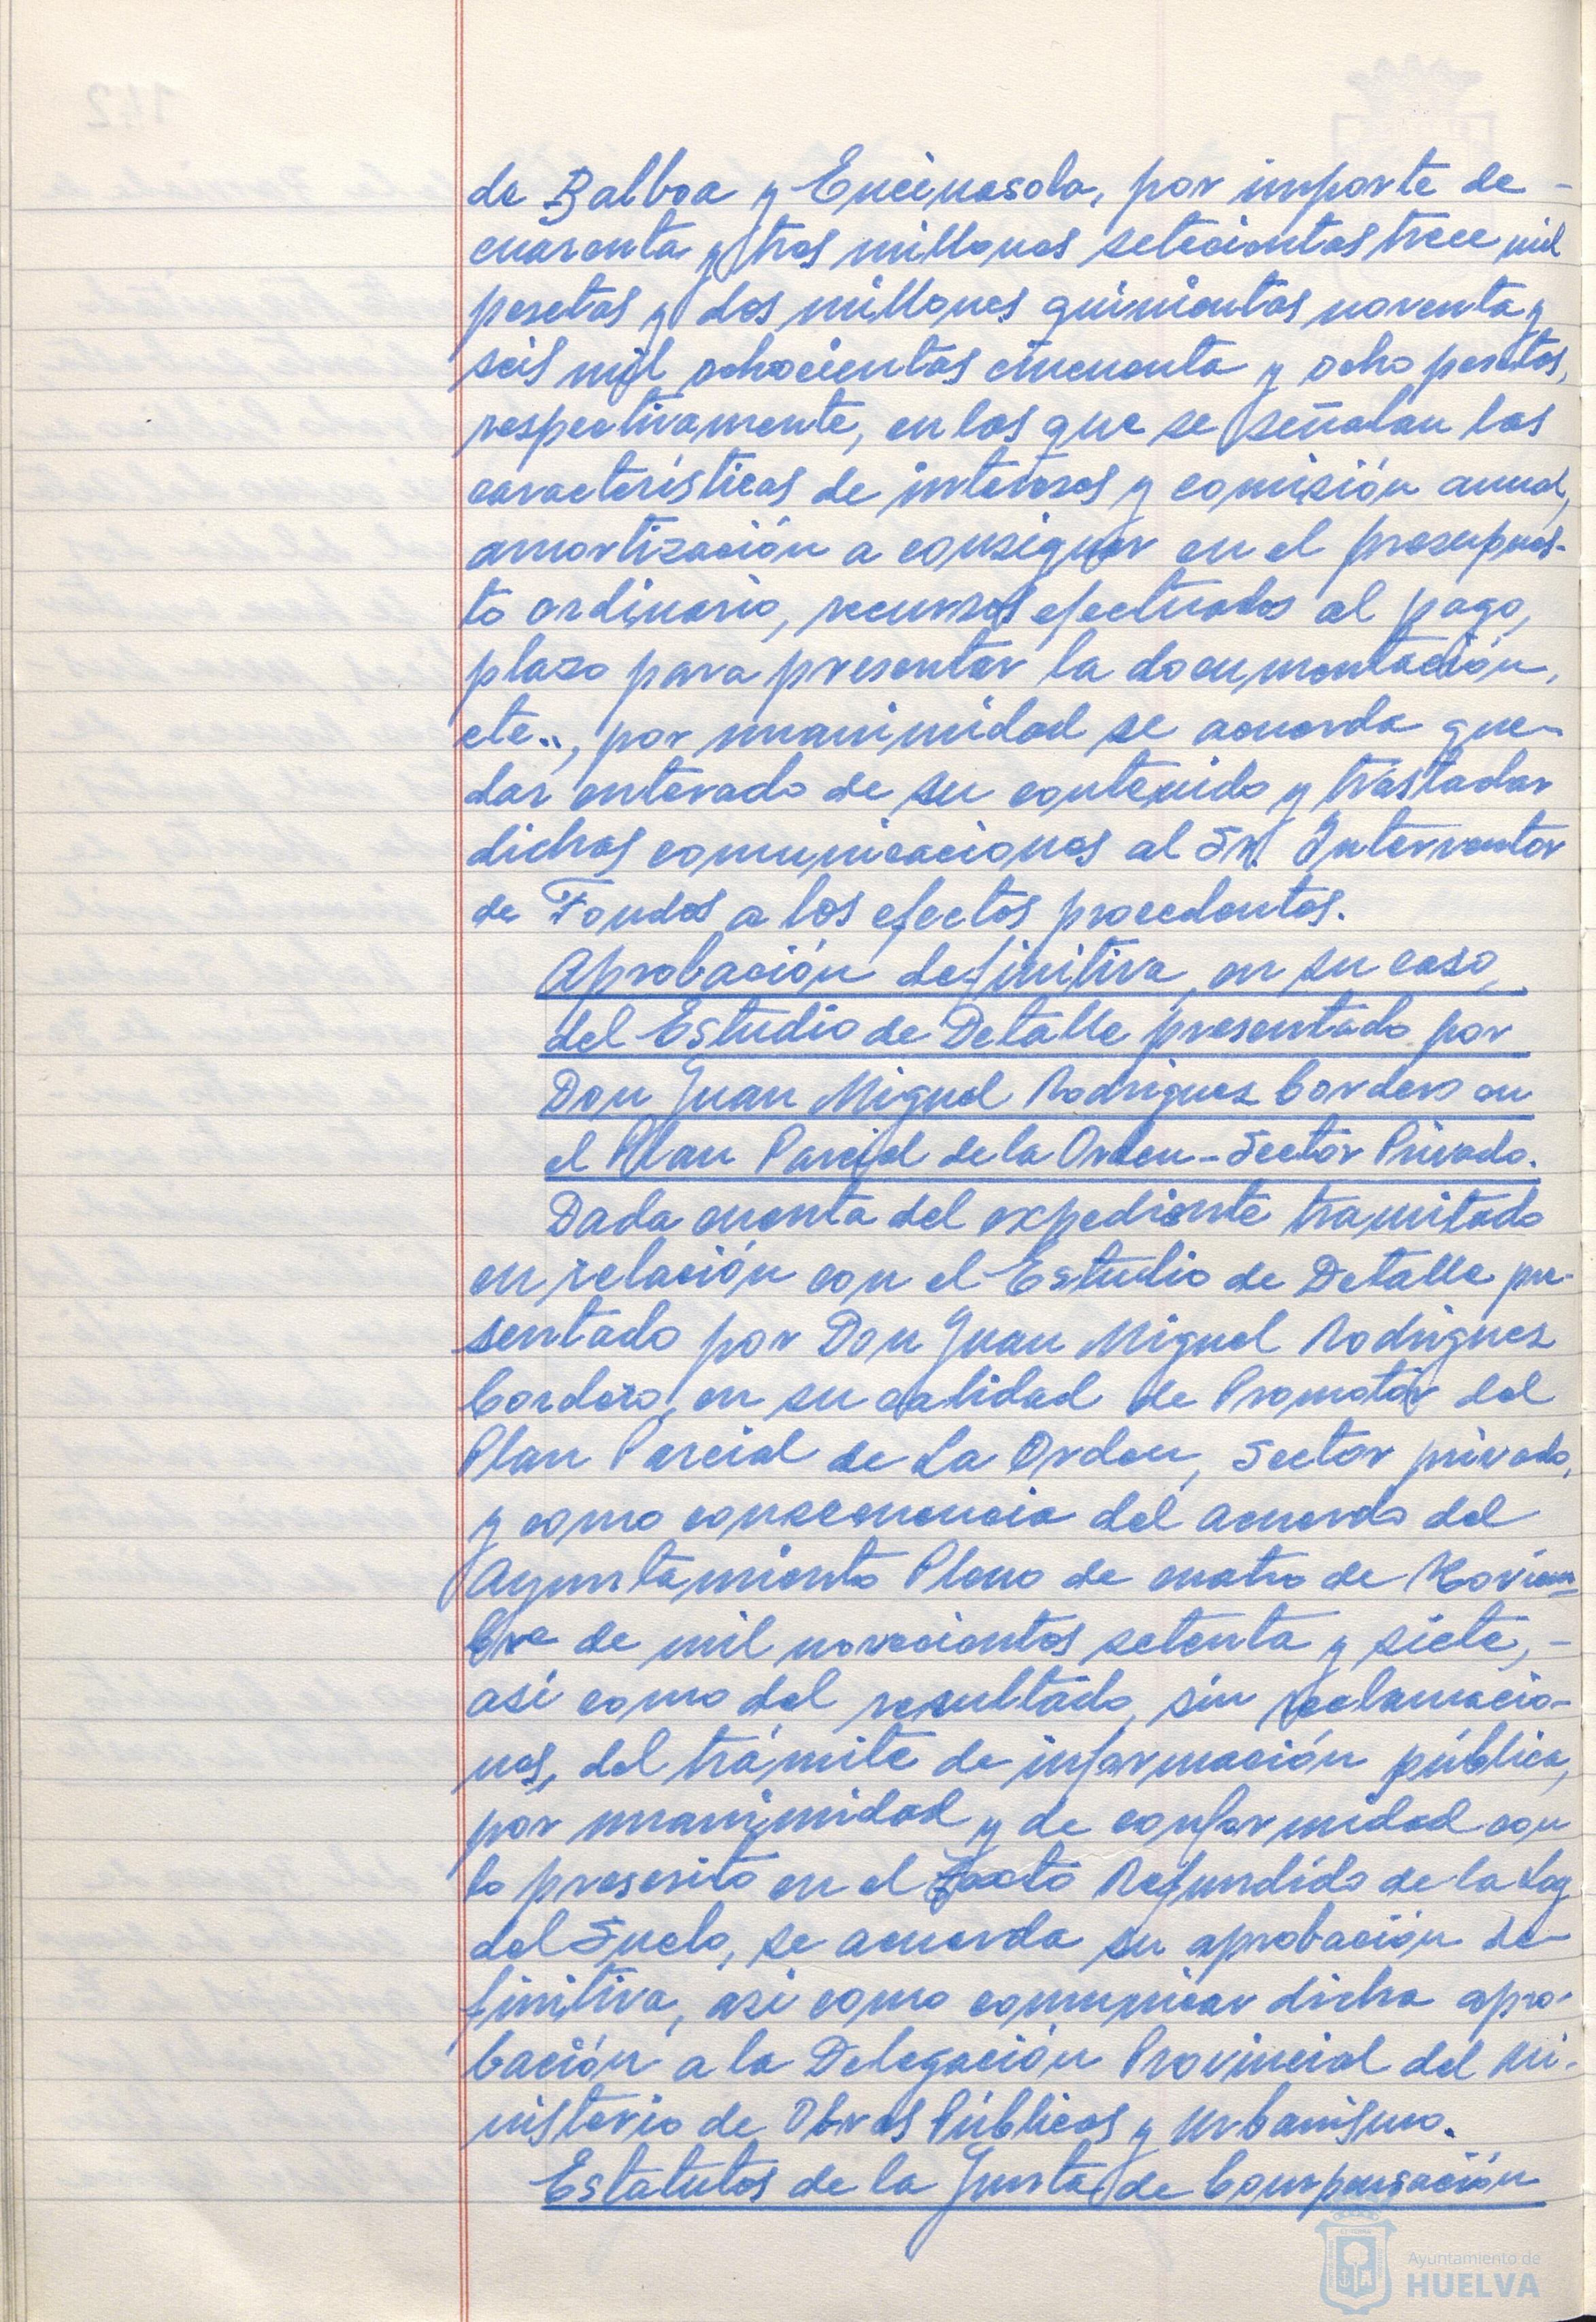 de Balboa y Encinasola, por importe de -
cuarenta y tres millones setecientas trece mil
pesetas y dos millones quinientas noventa y
seis mil ochocientas cincuenta y ocho pesetas,
respectivamente, en las que se señalan las
características de intereses y comisión anual,
amortización a consignar en el presupues-
to ordinario, recursos efectuados al pago,
plazo para presentar la documentación,
etc.., por unanimidad se acuerda que-
dar enterado de su contenido y trasladar
dichas comunicaciones al Sr. Interventor
de Fondos a los efectos procedentes.
Aprobación definitiva, en su caso,
del Estudio de Detalle presentado por
Don Juan Miguel Rodriguez Cordero en
el Plan Parcial de la Orden-Sector Privado.
Dada cuenta del expediente tramitado
en relación con el Estudio de Detalle pre-
sentado por Don Juan Miguel Rodriguez
Cordero, en su calidad de Promotor del
Plan Parcial de La Orden, Sector privado,
y como consecuencia del acuerdo del
Ayuntamiento Pleno de cuatro de Noviem
bre de mil novecientos setenta y siete, -
asi como del resultado, sin reclamacio-
nes, del trámite de información pública,
por unanimidad y de conformidad con
lo prescrito en el Texto Refundido de la Ley
del Suelo, se acuerda su aprobación de-
finitiva, asi como comunicar dicha apro-
bación a la Delegación Provincial del Mi-
nisterio de Obras Públicas y Urbanismo.
Estatutos de la Junta de Compensación
Ayuntamiento de
HUELVA